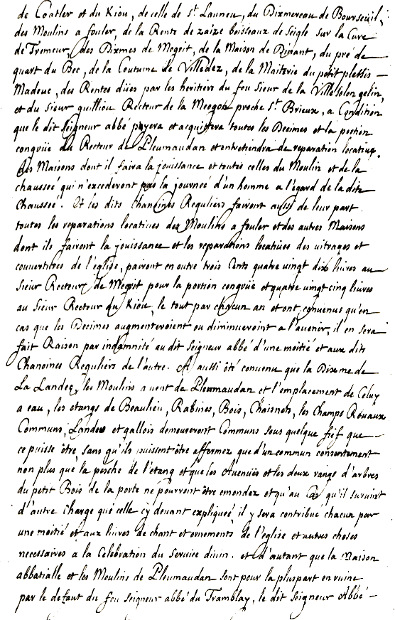 de Coatler et du Kiou, de celle de St Launeu, du Dixmereau de Bourseüil,
des Moulins a fouler, de la Rente de saize boisseaux de seigle sur la Cure
de Tremeur, des Dixmes de Megrit, de la Maison de Dinant, du pré de
quart du Bec, de la Coutume de Villedez, de la Maitrie du petit plessis
Madeuc, des Rentes düës par les heritiers du feu Sieur de la Villeslon gelin,
et du sieur guillion Recteur de la Meogon proche St Brieux, a Condition
que le dit seigneur abbé payera et acquittera toutes les Decimes et la portion
congruë du Recteur de Pleumaudan et entretiendra de reparation locative
les Maisons dont il faira la jouissance et toutes celles du Moulin et de la
chaussée qui n'excederont pas la journée d'un homme a l'égard de la dite
Chaussée. Et les dits chanoines Reguliers fairont aussi de leur part
toutes les reparations locatives des Moulins a fouler et des autres Maisons
dont ils fairont la jouissance et les reparations locatives des vitrages et
couvertures de l'eglise, pairont en outre trois Cents quatre vingt dix livres au
Sieur Recteur de Megrit pour la portion congruë et quatre vingt cinq livres
au Sieur Recteur du Kiou, le tout par chacun an et ont convenus qu'en
cas que les Decimes augmenteroient ou diminueroint a l'avenir, il en sera
fait Raison par indamnité au dit Seigneur abbé d'une moitié et aux dits
Chanoines Reguliers de l'autre. A aussi été convenu que la Dixme de
La Landec, les Moulins a vent de Pleumaudan et l'emplacement de Celuy
a eau, les etangs de Beaulieu, Rabines, Bois, Chaisnots, les Champs Rouaux
Communs, Landes et gallois demeureront Communs sous quelque fief que
ce puisse être, sans qu'ils puissent être affermez que d'un commun consentement
non plus que la pesche de l'étang et que les Avenuës et les deux rangs d'arbres
du petit Bois de la porte ne pourront être emondez et qu'au Cas qu'il survint
d'autre Charge que celle cy devant expliqueé, il y sera contribué chacun par
une moitié et aux livres de chant et ornements de l'eglise et autres choses
necessaires a la Celebration du Service divin. et d'autant que la Maison
abbatialle et les Moulins de Pleumaudan sont pour la pluspart en ruine
par le defaut du feu seigneur abbé du Tramblay, le dit Seigneur Abbé